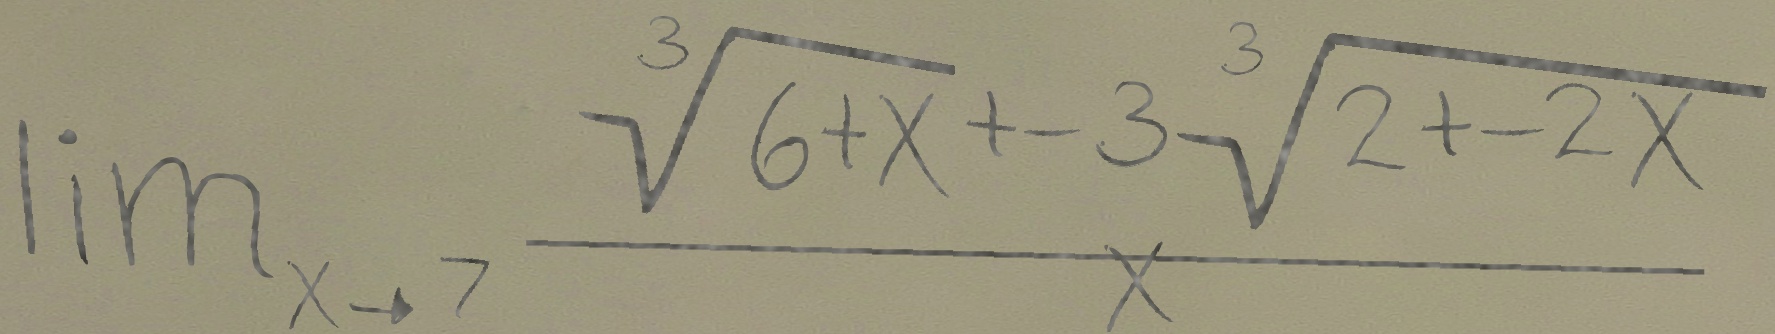 \lim_{x \to 7} \frac{\sqrt[3]{6+x}+-3\sqrt[3]{2+-2x}}{x}